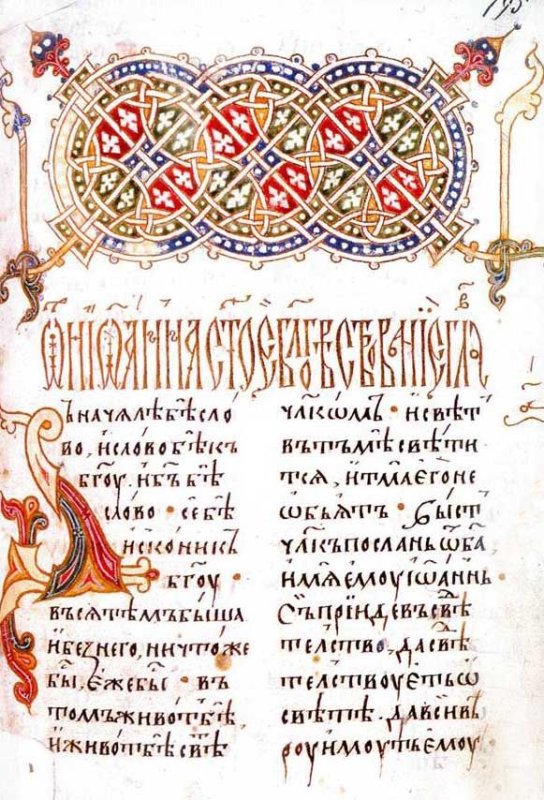 195
Ѿ ИѠАННА СТОЕ БЛГОВѢСТВОВАНІЕ ГЛА
В
ъ начялѣ бѣ сло
во, и слово бѣ къ
бг҃оу. и бъ҃ бѣ
слово · се бѣ
искони къ
бг҃оу ·
въся тѣмъ быша
и без него, ничтоже
бы҃, еже бы҃ · въ
томъ живот бѣ,
и живот бѣ свѣ
чл҃кѡмъ · и свѣт
въ тъмѣ свѣти
тся, и тма его не
ѡбьятъ · быст
чл҃къ посланъ ѿ ба҃,
имя емоу іѡаннь
съ прїиде въ свѣ
телство, да свѣ
телствоуеть ѡ
свѣтѣ. да вси вѣ
роу имоуть емоу